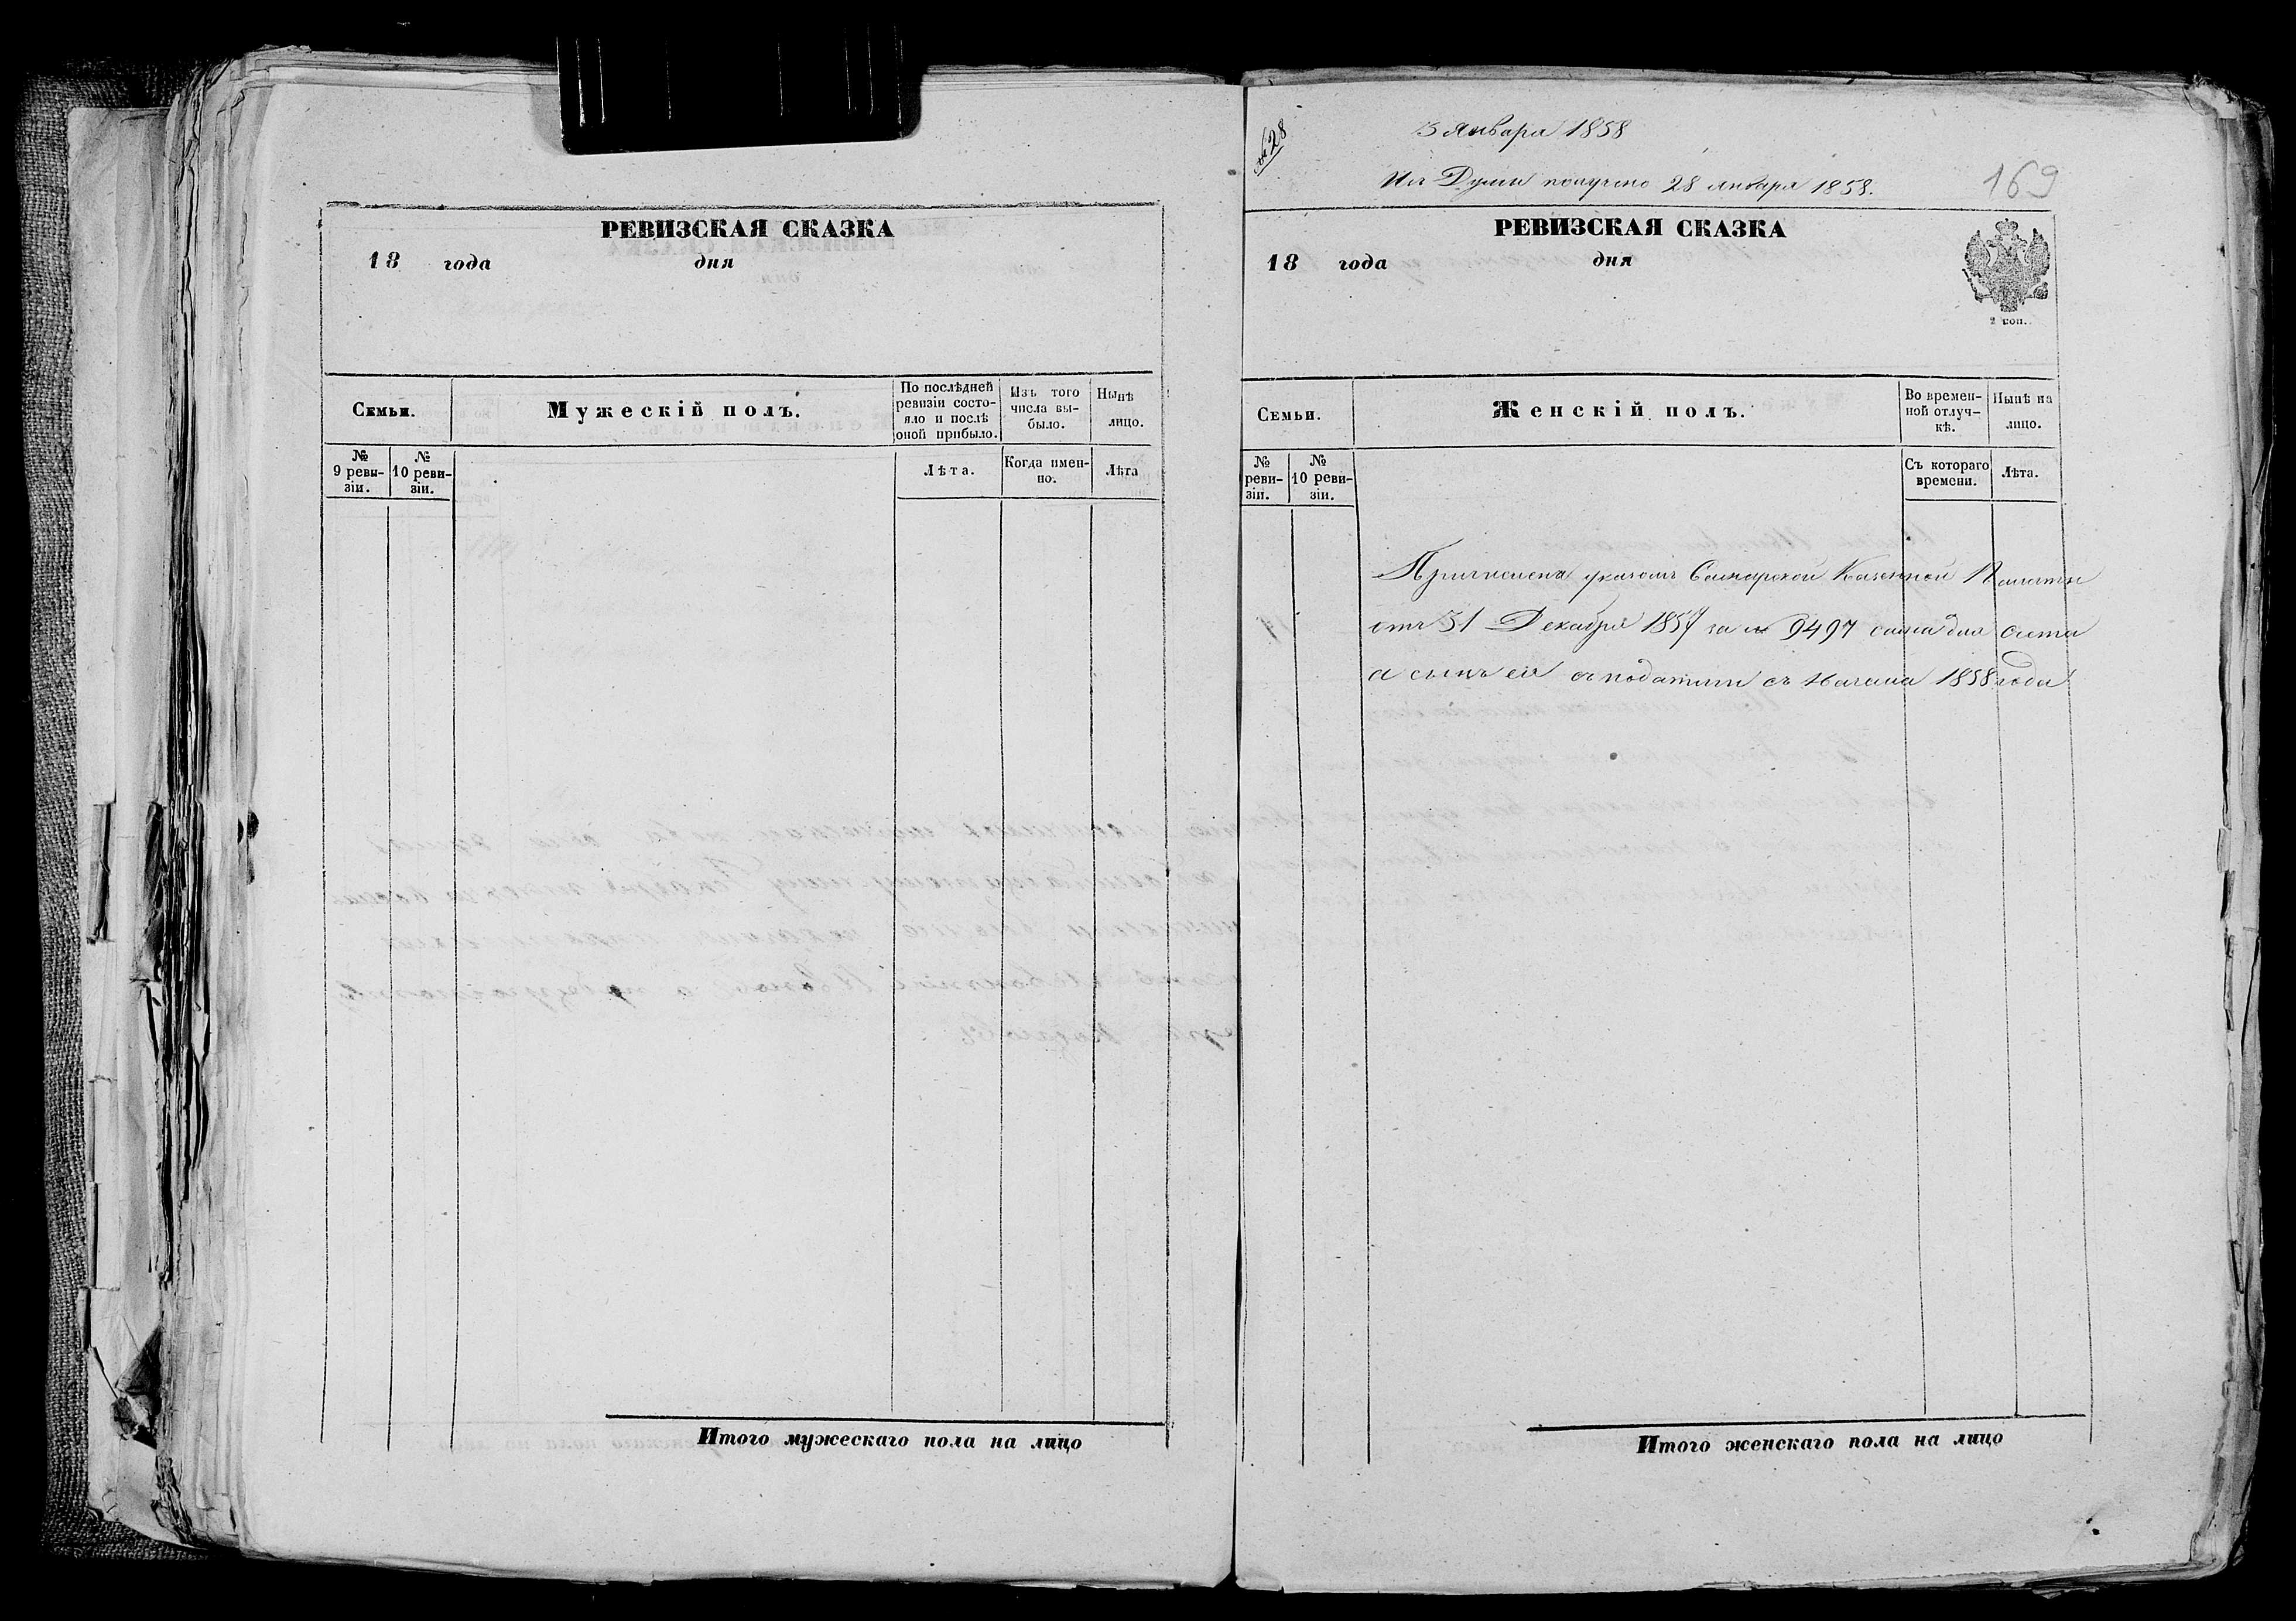 РЕВИЗСКАЯ СКАЗКА
18 года дня
Семьи.
Мужескій полъ.
По послѣдней ревизіи состояло и послѣ оной прибыло.
Изъ того числа выбыло.
Нынѣ лицо.
№ 9 ревизіи.
№ 10 ревизіи.
Лѣта.
Когда именно.
Лѣта
Итого мужескаго пола на лицо
№ 28
3 Января 1858
Изъ Думы получено 28 января 1858.
169
РЕВИЗСКАЯ СКАЗКА
18 года дня
2 коп.
Семьи.
Женскій полъ.
Во временной отлучкѣ.
Нынѣ на лицо.
№ ревизіи.
№ 10 ревизіи.
Съ котораго времени.
Лѣта.
Причислена указомъ Самарской Казенной Палаты
отъ 31 Декабря 1857 за № 9497 сама для счета
а сынъ ея съ податьми съ начала 1858 года
Итого женскаго пола на лицо